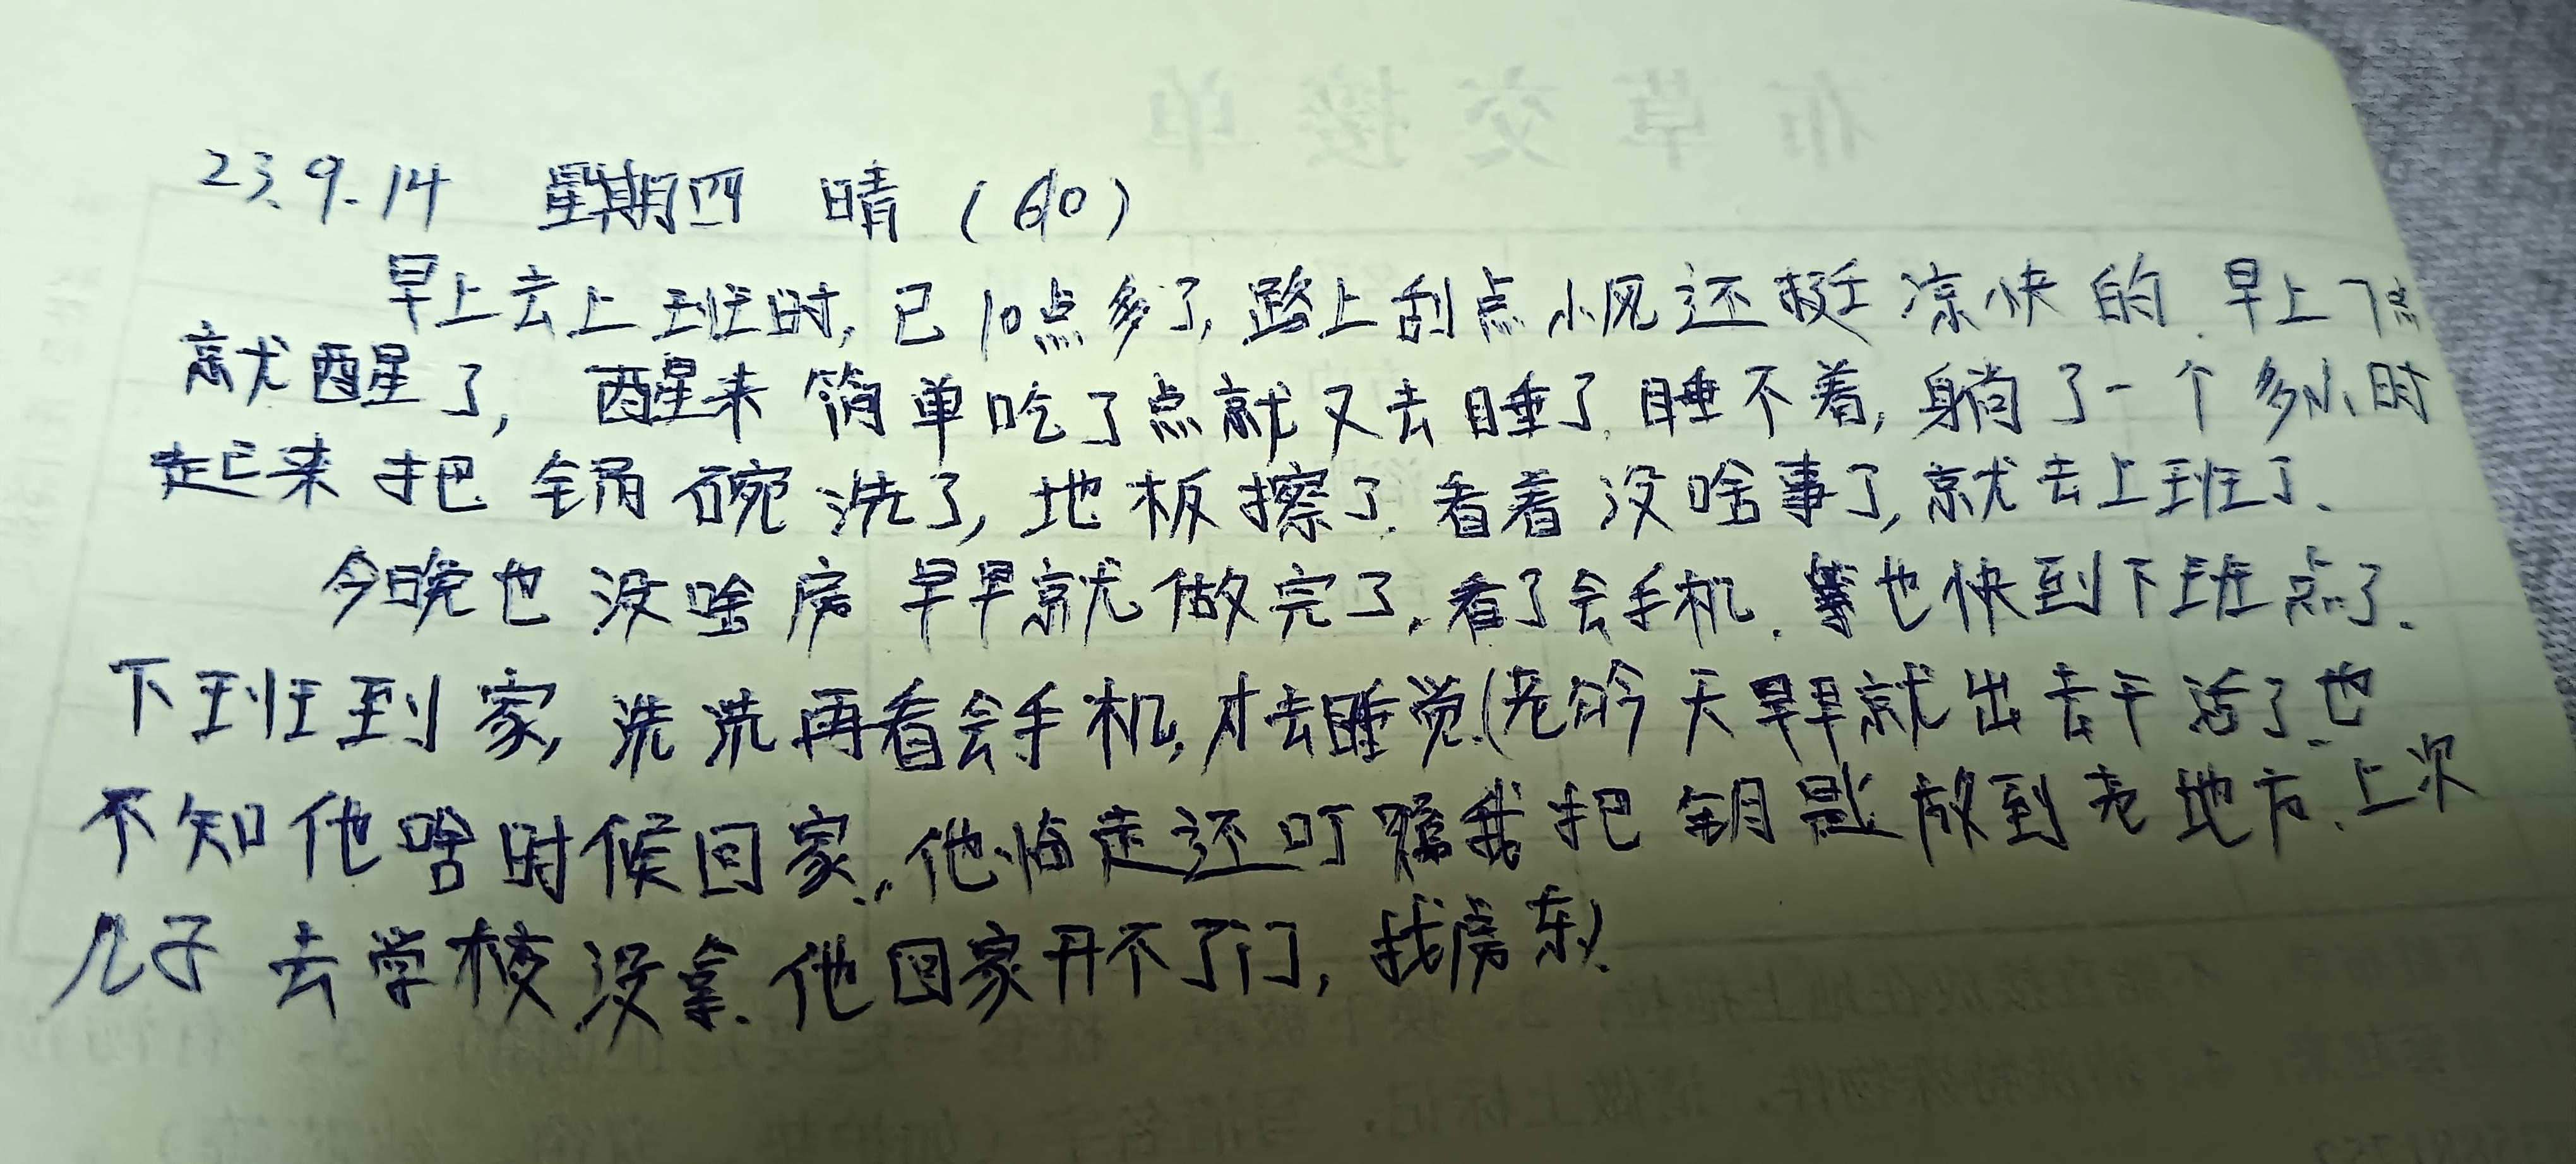 布草交接单
23.9.14 星期四 晴 (60)
早上去上班时,已10点多了,路上刮点小风还挺凉快的.早上7点
就醒了,醒来简单吃了点就又去睡了.睡不着,躺了一个多小时
起来把锅碗洗了,地板擦了.看着没啥事了,就去上班了.
今晚也没啥房早早就做完了.看了会手机.也快到下班点了.
下班到家,洗洗再看会手机,才去睡觉.(老公今天早早就出去干活了.也
不知他啥时候回家.,他临走还叮嘱我把钥匙放到老地方.上次
儿子去学校没拿.他回家开不了门,找房东).